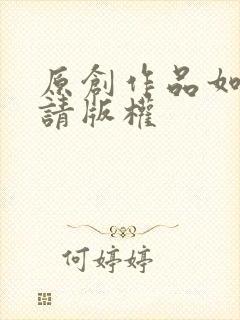 原創作品如
請版權
何婷婷